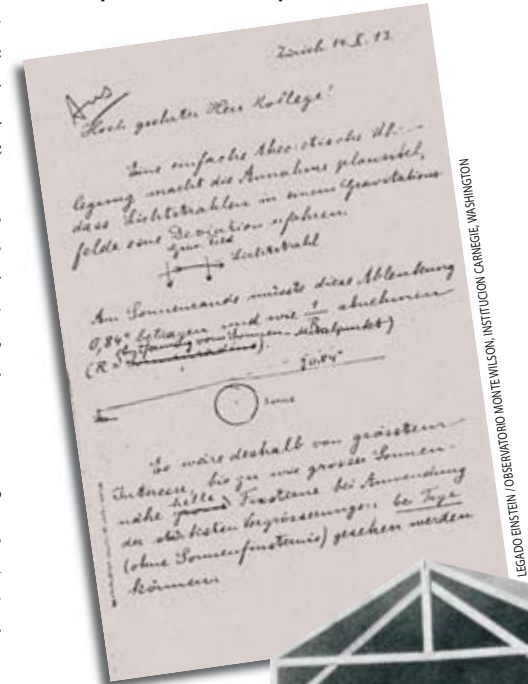 Zürich 14. X. 13.
Hoch geehrter Herr Kollege!
Eine einfache theoretische Über-
legung macht die Annahme plausibel,
dass Lichtstrahlen in einem Gravitations-
felde eine Deviation erfahren.
Grav. Feld
Lichtstrahl
Am Sonnenrande müsste diese Ablenkung
0,84" betragen und wie 1/R abnehmen
(R =
0,84"
Sonne
Es wäre deshalb von grösstem
Interesse, bis zu wie grosser Sonnen-
nähe helle Fixsterne bei Anwendung
der stärksten Vergrösserungen bei Tage
(ohne Sonnenfinsternis) gesehen werden
können.
LEGADO EINSTEIN / OBSERVATORIO MONTE WILSON, INSTITUCION CARNEGIE, WASHINGTON